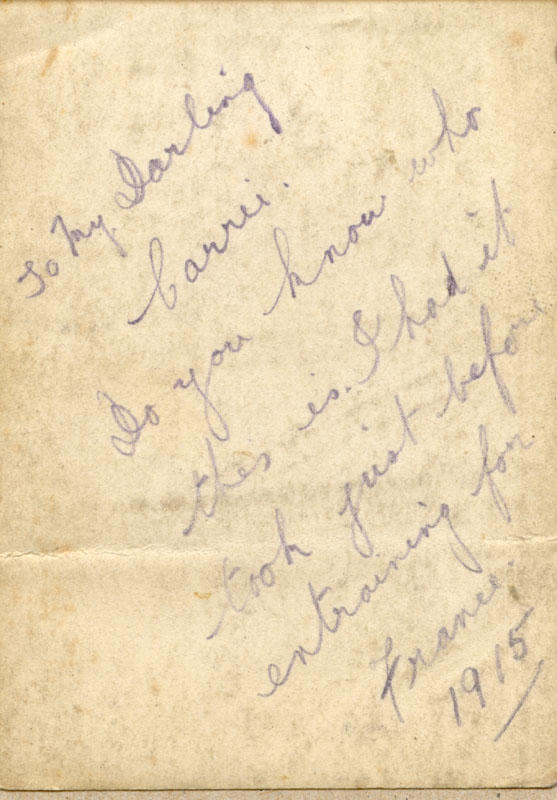 To My Darling
Carrie.
Do you know who
this is. I had it
took just before
entraining for
France.
1915